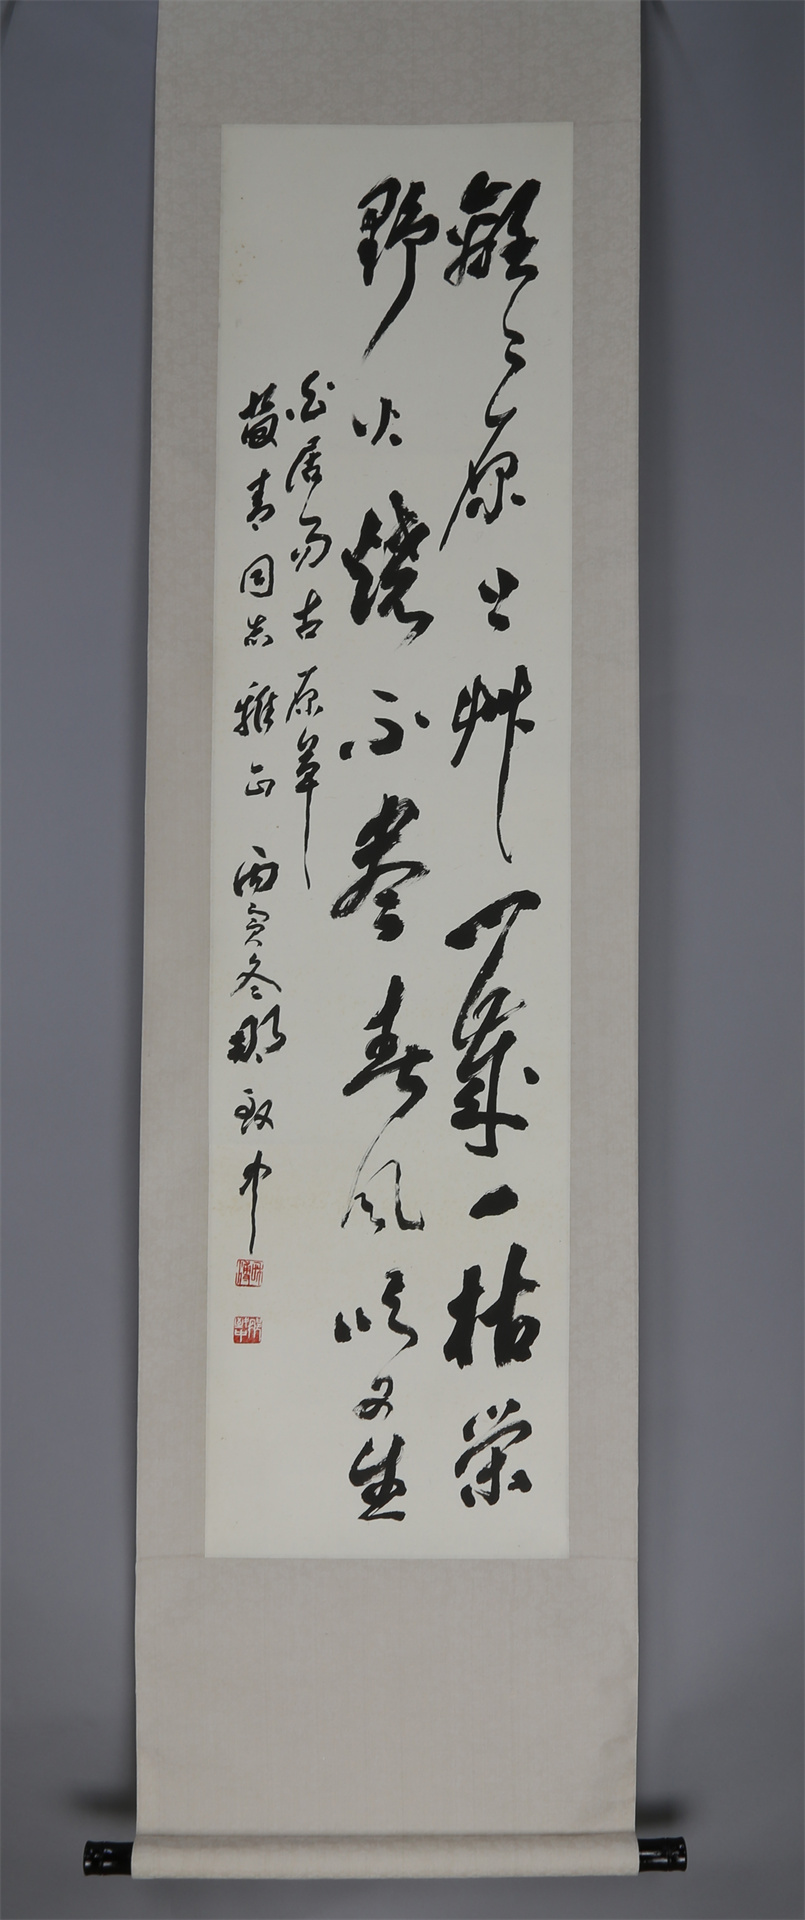 離〻原上艸一歲一枯榮
野火燒不盡春風吹又生
白居易古原草
青同志雅正丙寅冬那致中